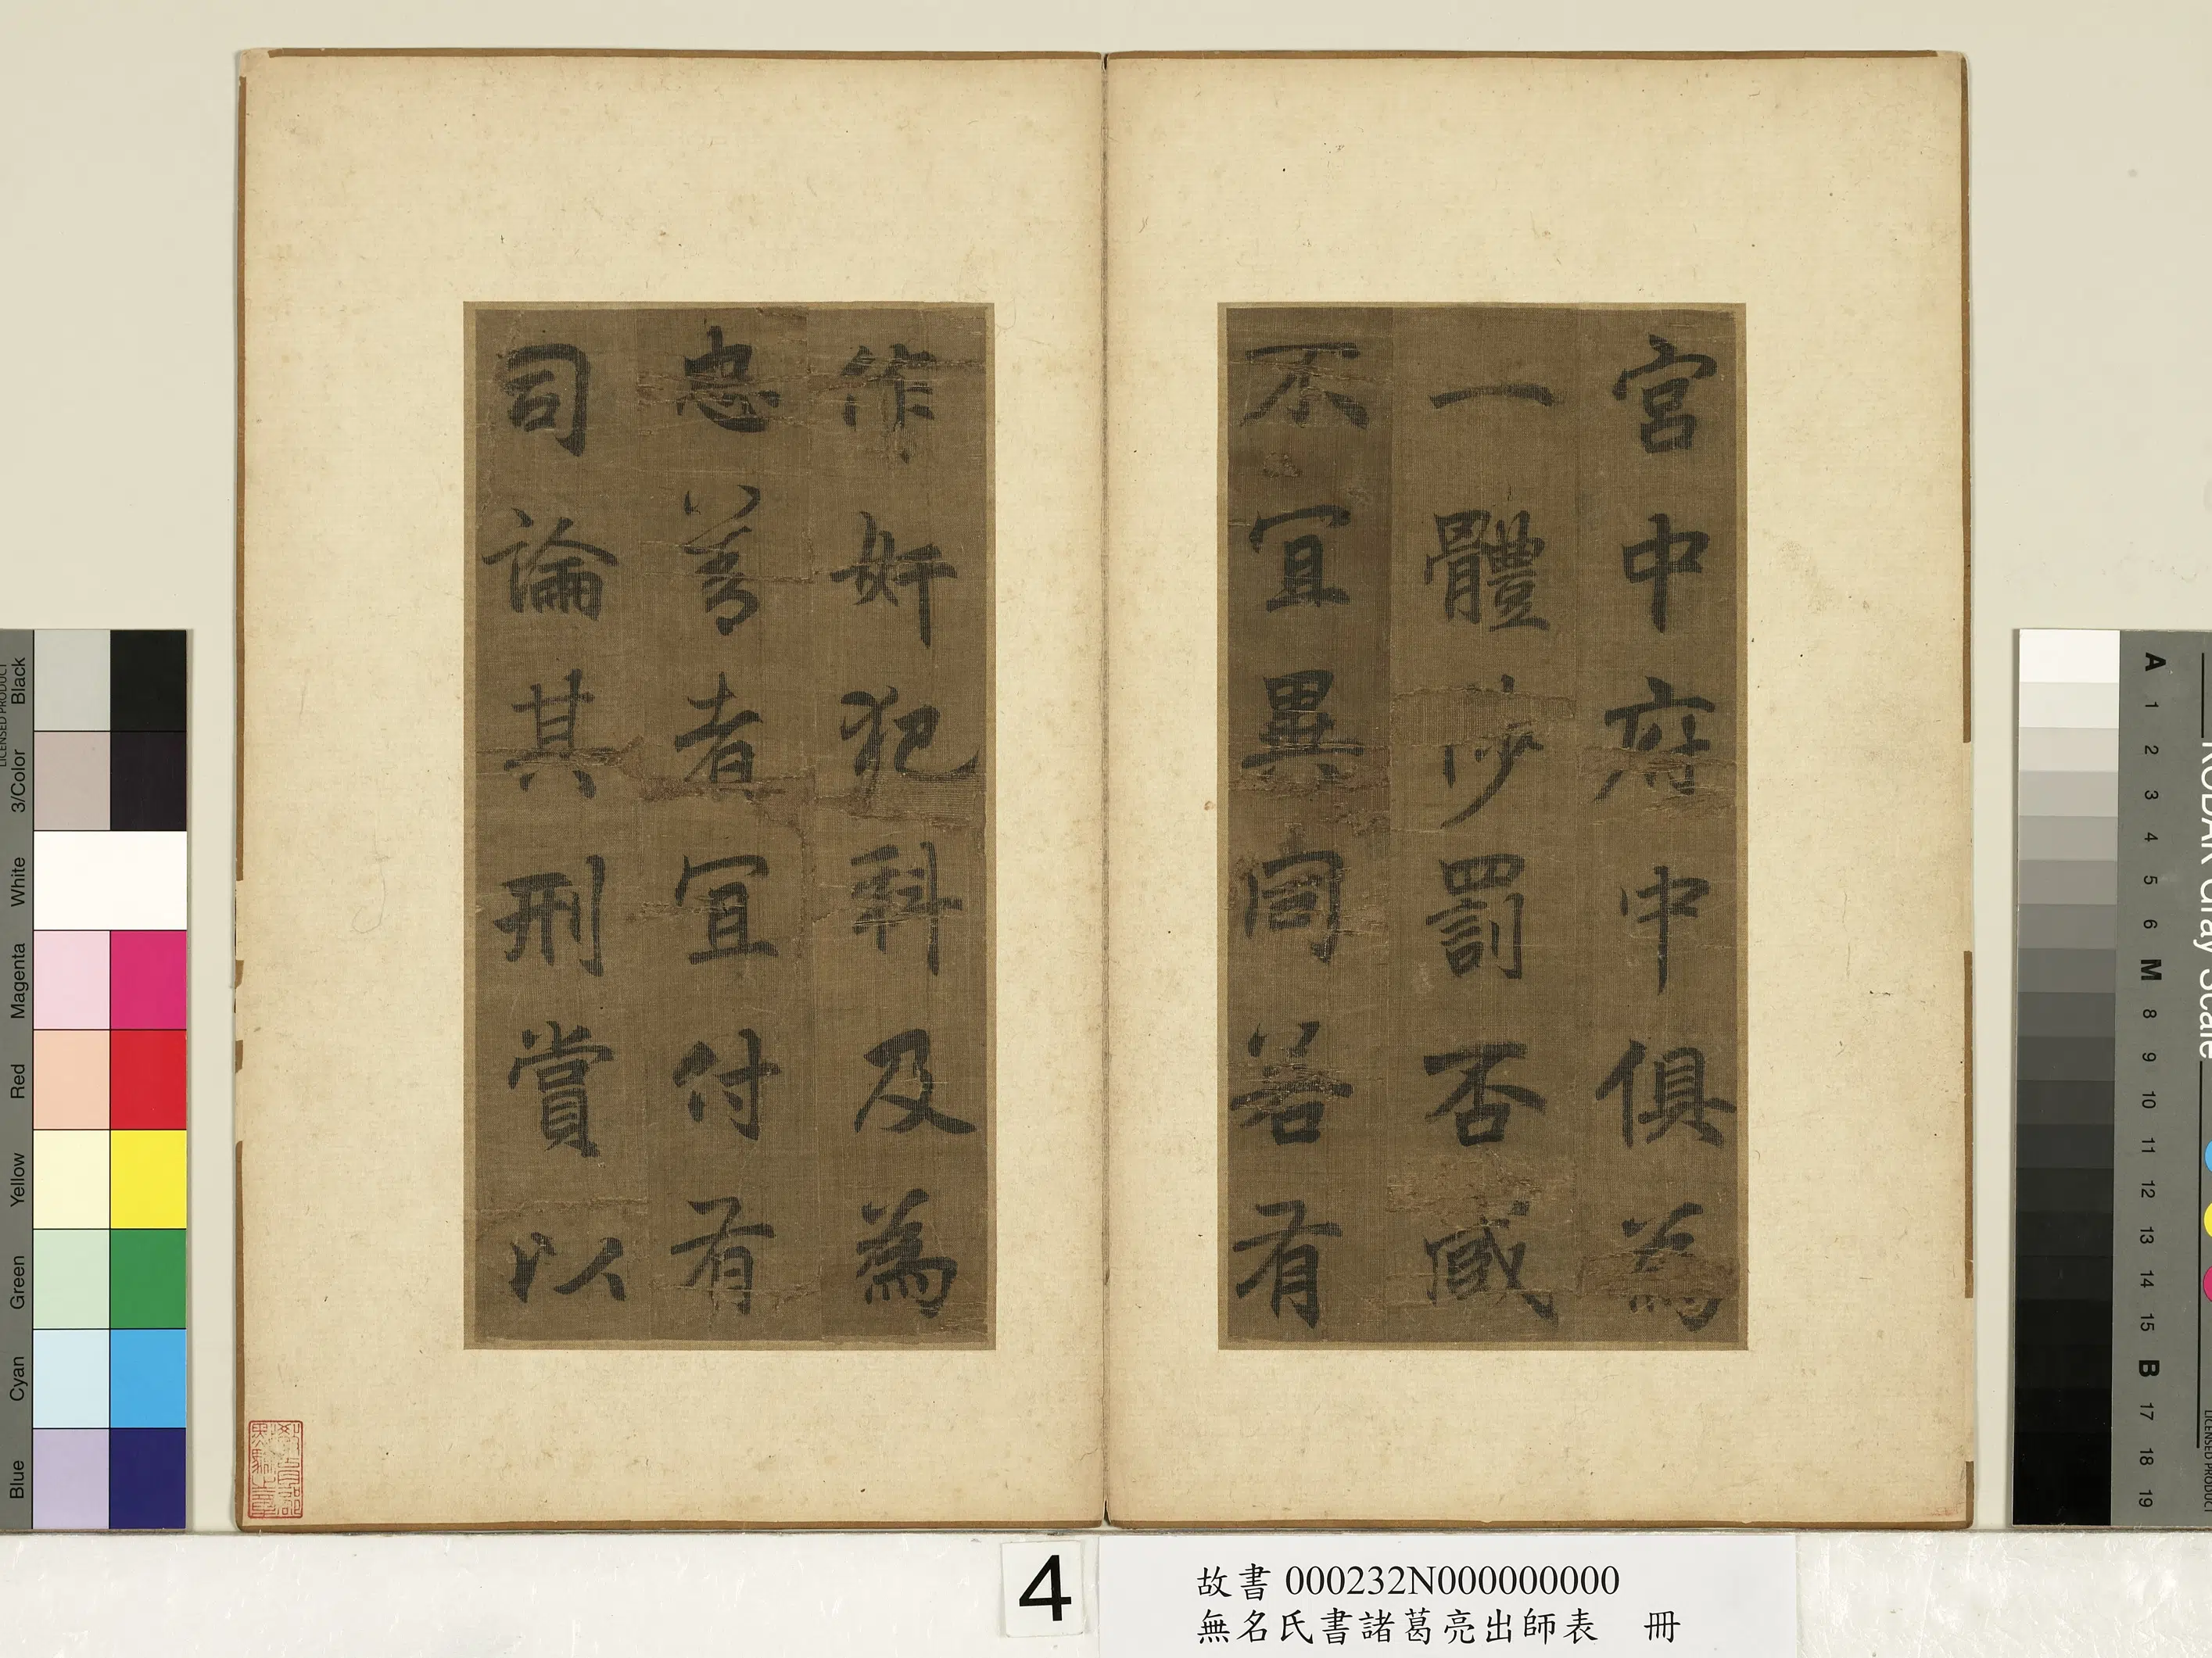 宮中府中俱為
一體陟罰否臧
不宜異同若有
作奸犯科及為
忠善者宜付有
司論其刑賞以
4
故書 000232N000000000
無名氏書諸葛亮出師表 冊
Black
3/Color
White
Magenta
Red
Yellow
Green
Cyan
Blue
LICENSED PRODUCT
KODAK Gray Scale
A 1 2 3 4 5 6 M 8 9 10 11 12 13 14 15 B 17 18 19
LICENSED PRODUCT